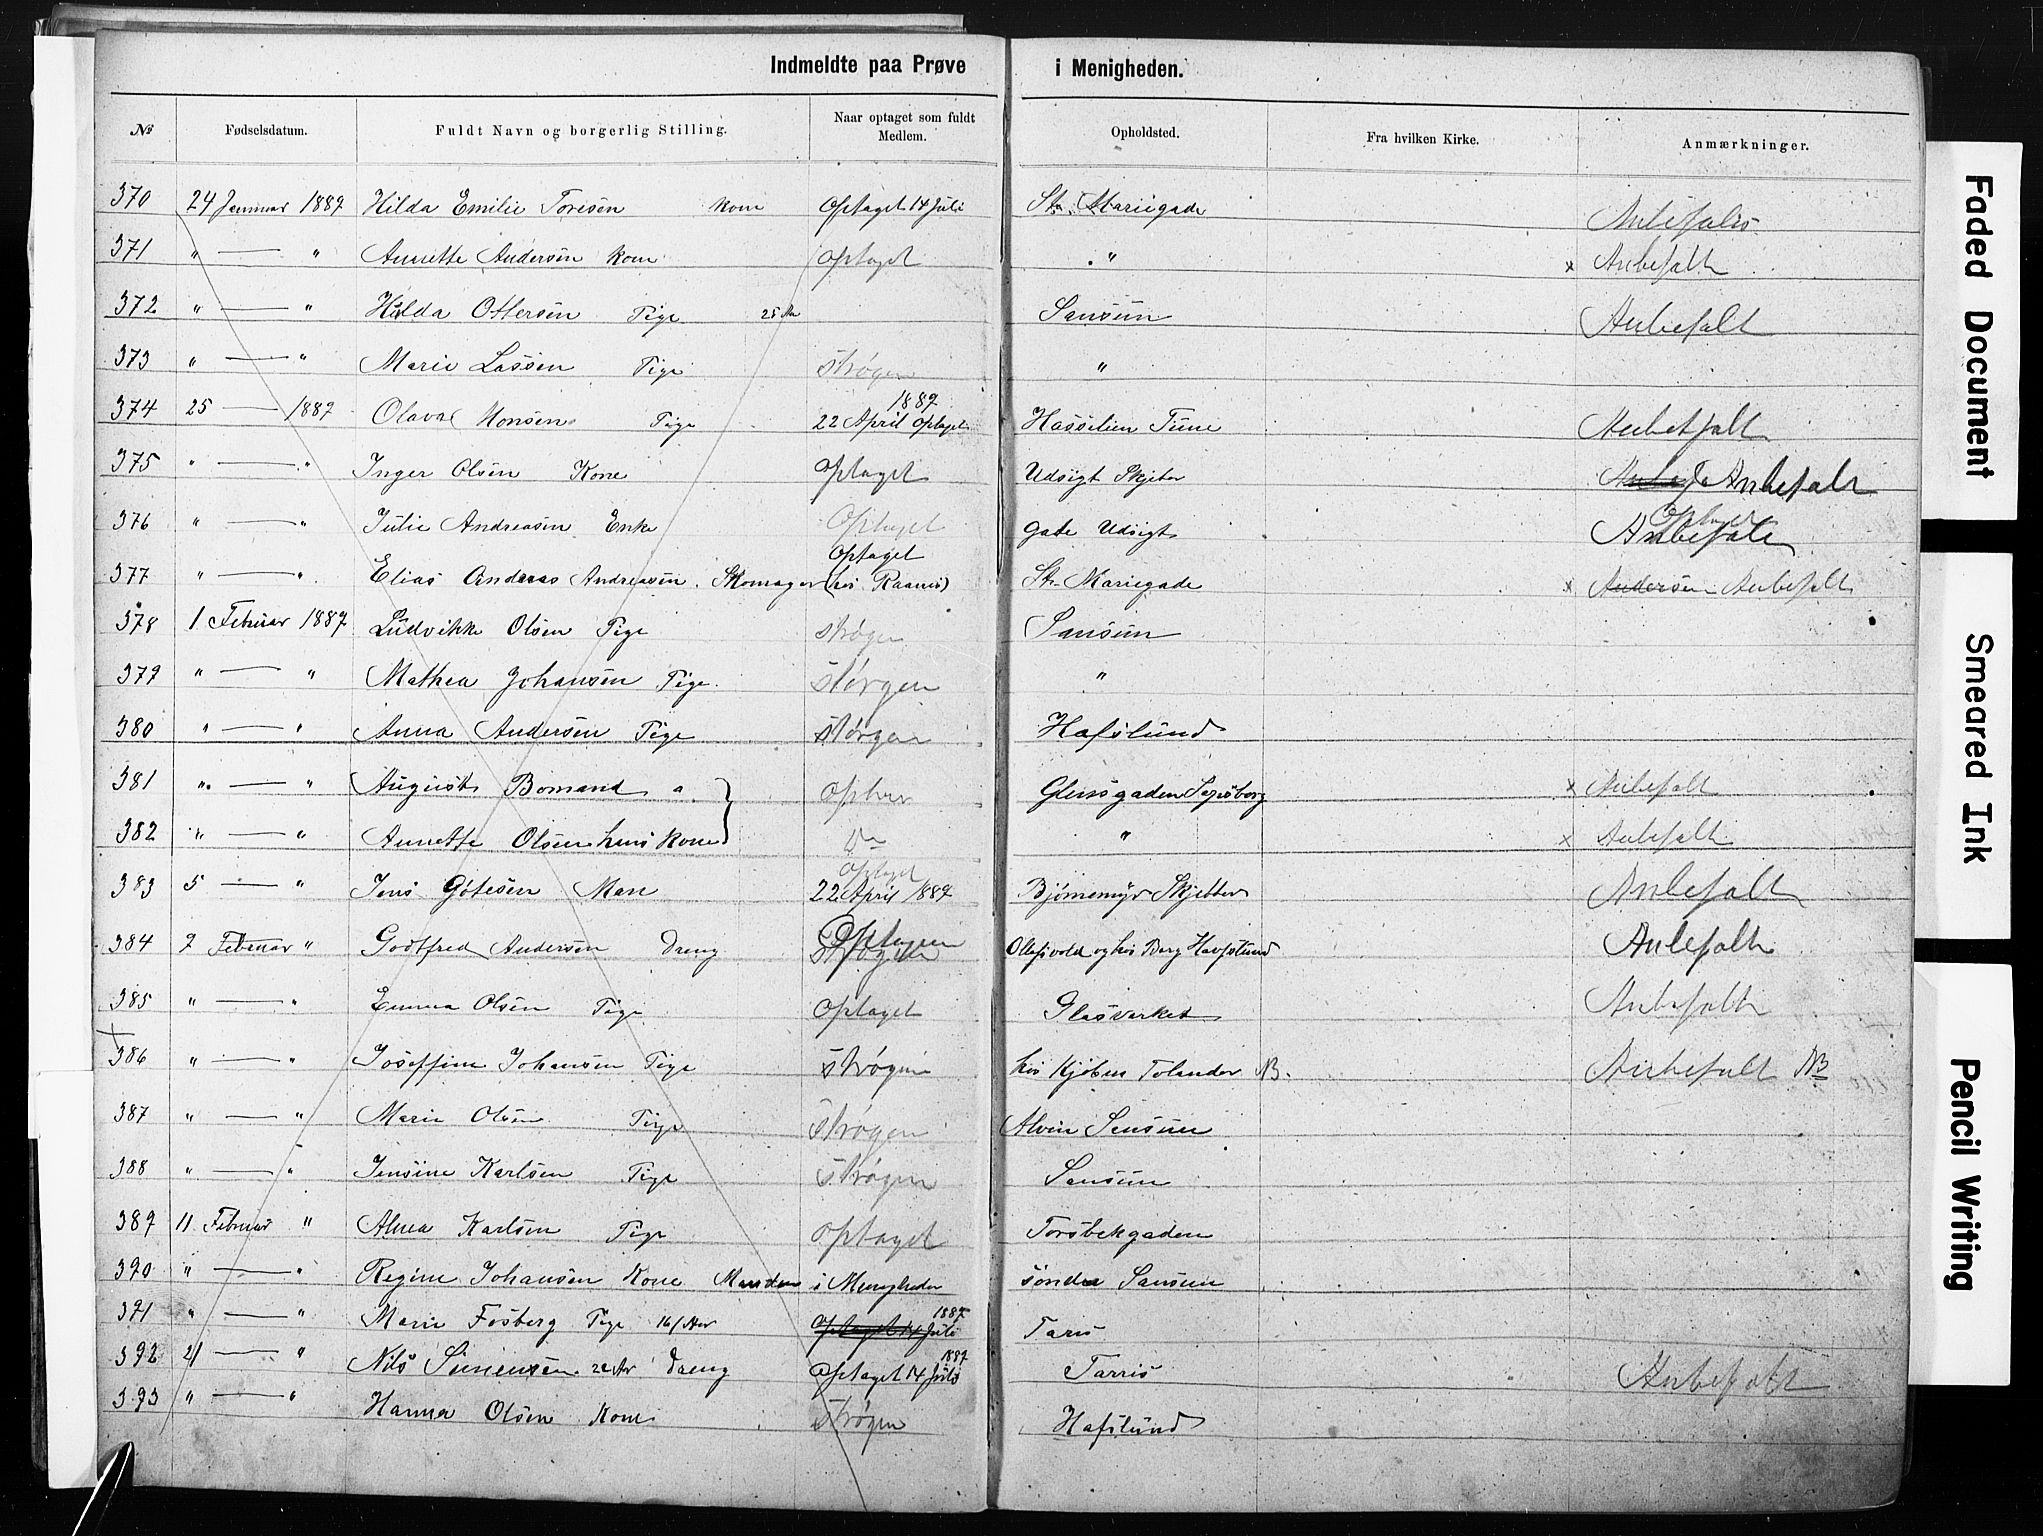 Indmeldte paa Prøve i Menigheden.
№ Fødselsdatum. Fuldt Navn og borgerlig Stilling. Naar optaget som fuldt Medlem. Opholdsted. Fra hvilken Kirke. Anmærkninger.
370 24 Januar 1887 Hilda Emilie Toresen Kone Optaget 14 Juli St. Mariegade Anbefales
371 " — " Annette Andersen Kone Optaget " x Anbefalt
372 " — " Hilda Ottersen Pige 25 Aar Sansun Anbefalt
373 " — " Marie Lassen Pige strøgen "
1887
374 25 — 1887 Olava Monsen Pige 22 April Optaget Hasselien Tune Anbefalt
375 " — " Inger Olsen Kone Optaget Udsigt Skjeber Anbefalt
376 " — " Julie Andreasen Enke Optaget Gade Udsigt Optaget Anbefalt
Optaget
377 " — " Elias Andreas Andreasen Skomager (hos Raanes) St. Mariegade x Andersen Anbefalt
378 1 Febuar 1887 Ludvikke Olsen Pige strøgen Sansun
379 " — " Mathea Johansen Pige størgen "
380 " — " Anna Andersen Pige størgen Hafslund
381 " — " August Bomand a Glensgaden Sarpsborg x Anbefalt
382 " — " Annette Olsen hans Kone " x Anbefalt
Optaget
383 5 — " Jens Gøtesen Man 22 April 1887 Bjørnemyr Skjebber Anbefalt
Optagen
384 7 Febuar " Godtfred Andersen Dreng strøgen og hos Berg Havfslund Anbefalt
385 " — " Emma Olsen Pige Optaget Glasverket Anbefalt
386 " — " Joseffine Johansen Pige strøgen hos Kjøbm Tolander NB. Anbefalt NB
387 " — " Marie Olsen Pige strøgen Alvim Sansun
388 " — " Jensine Karlsen Pige strøgen Sansun
389 11 Febuar " Alma Karlsen Pige optaget Torsbekgaden
390 " — " Regine Johansen Kone Manden i Menigheden søndre Sansum
1887
391 " — " Marie Fosberg Pige 16 Aar Optaget 14 Juli Taris
1887
392 21 — " Nils Simensen 22 Ar Dreng Optaget 14 Juli Tarris Anbefalt
393 " — " Hanna Olsen Kone strøgen Hafslund
Faded Document
Smeared Ink
Pencil Writing